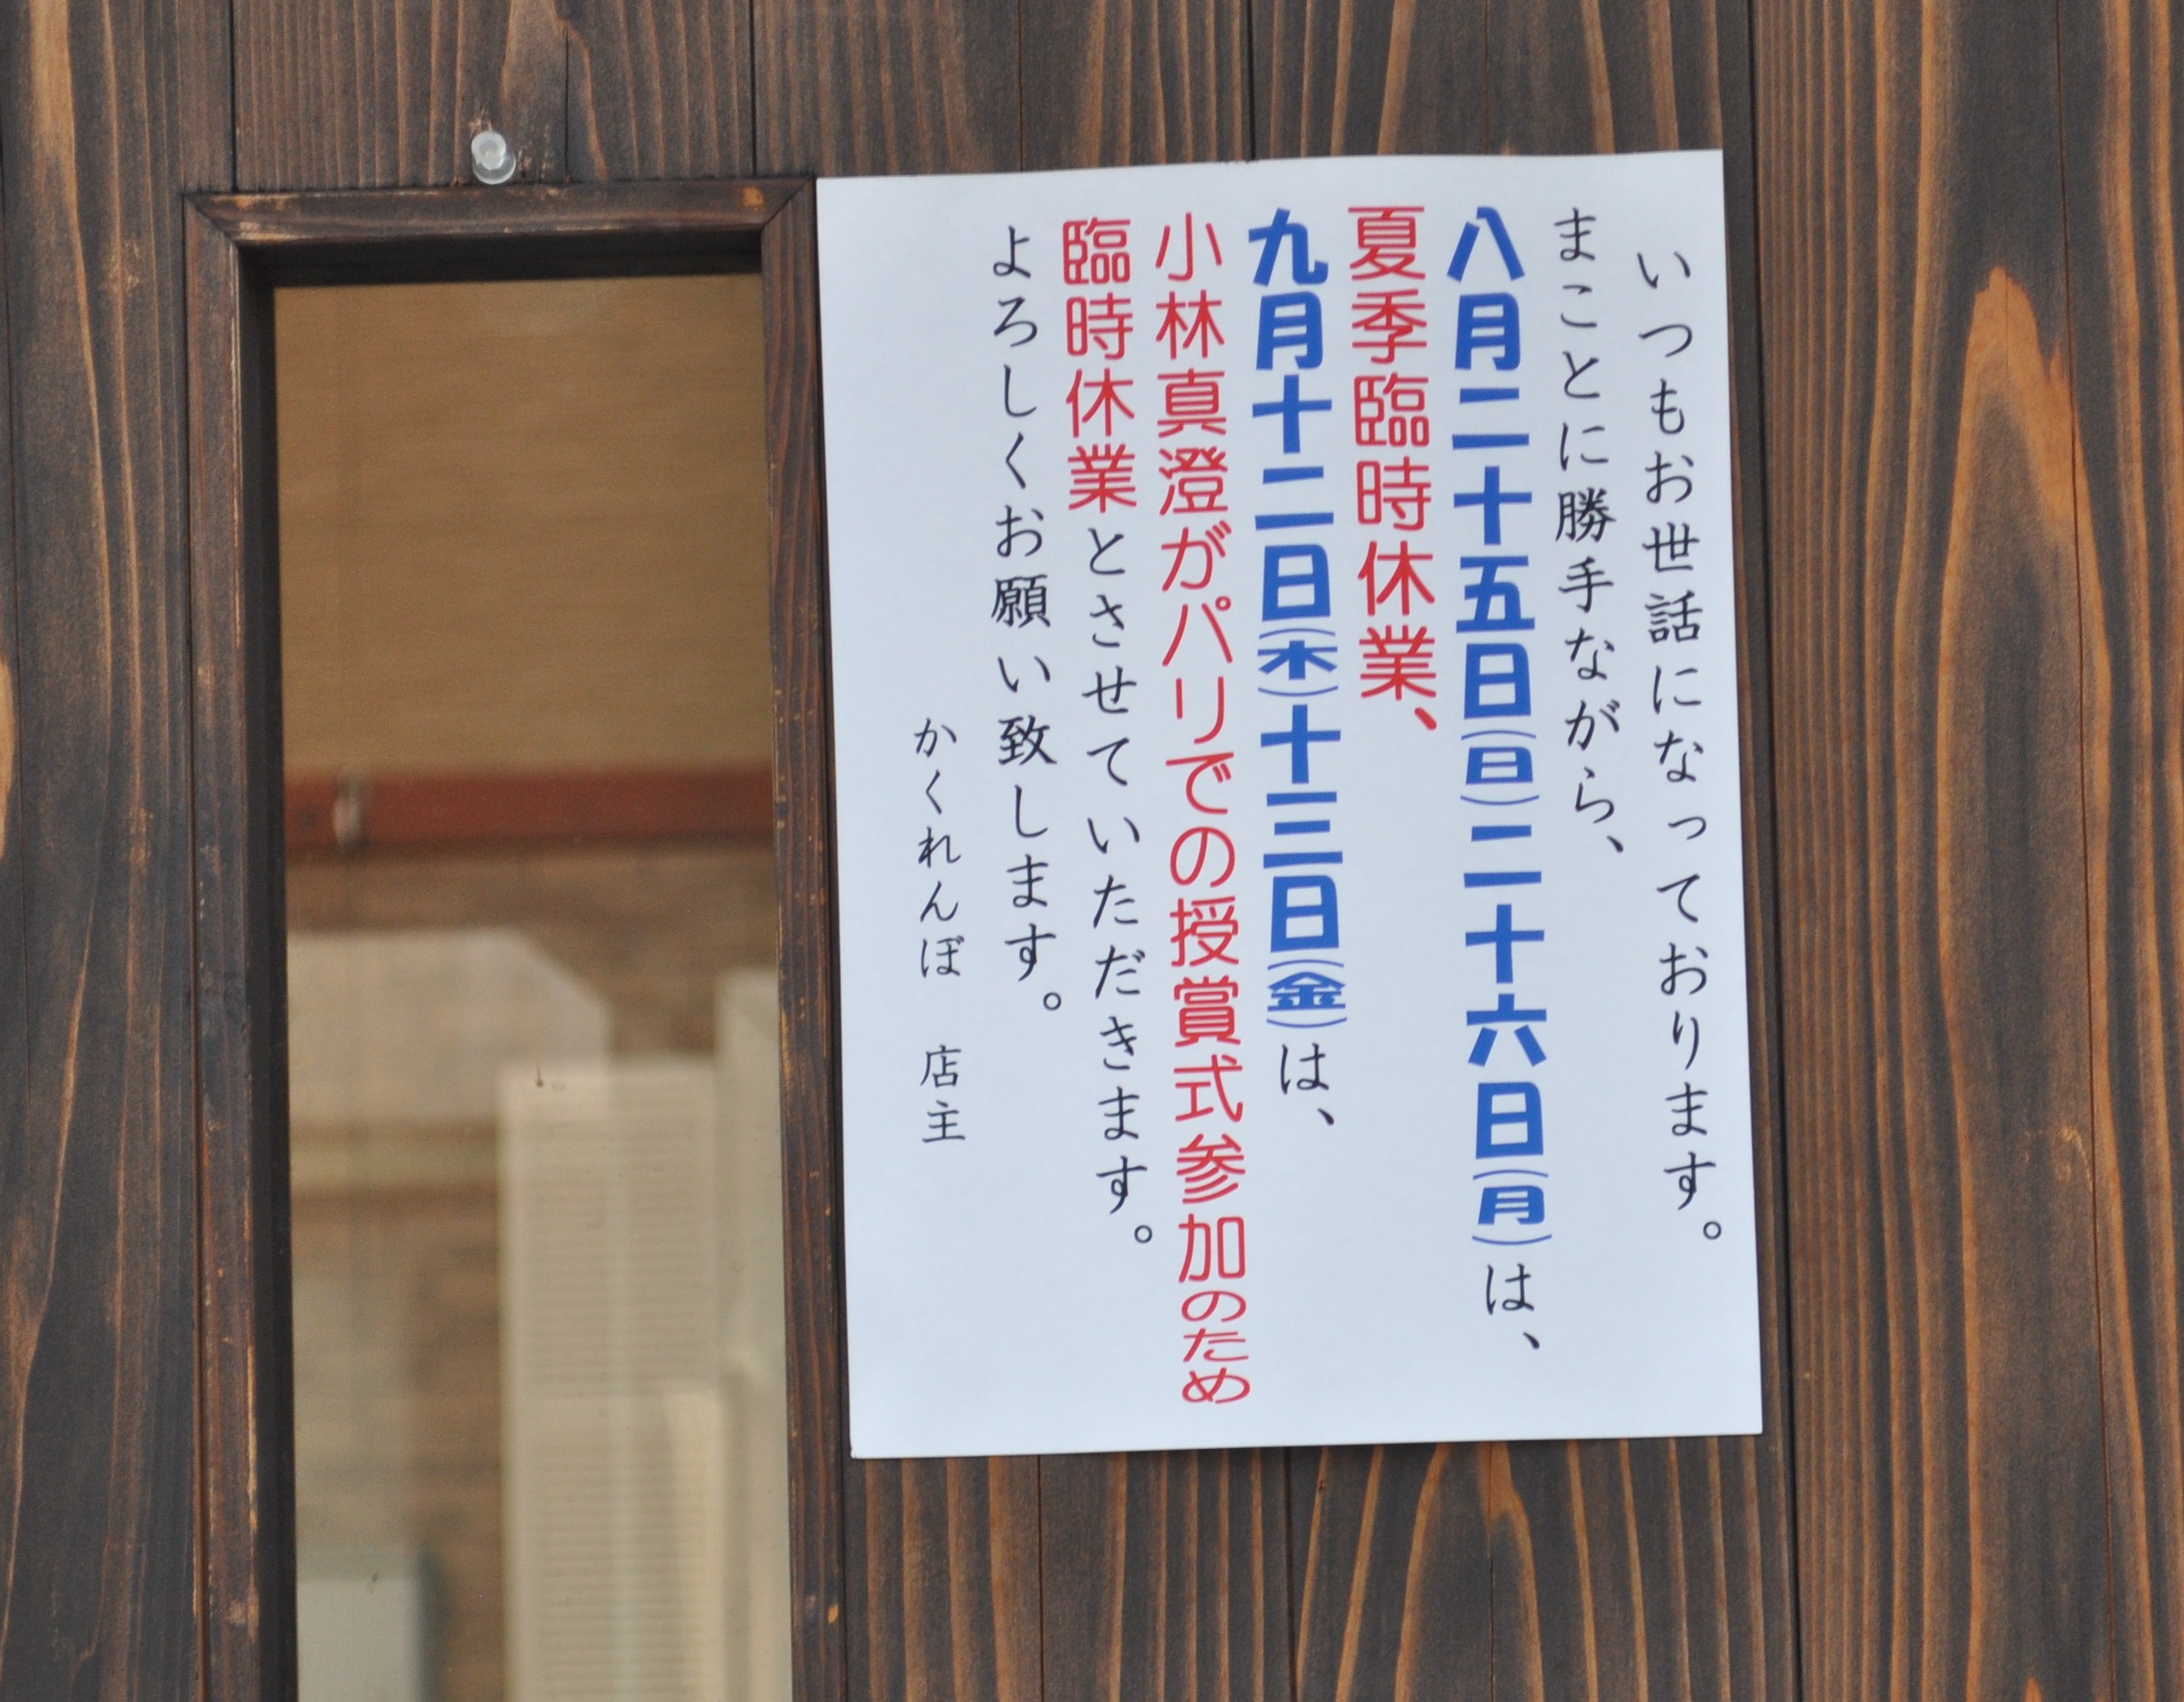 いつもお世話になっております。
まことに勝手ながら、
八月二十五日(日)二十六日(月)は、
夏季臨時休業、
九月十二日(木)十三日(金)は、
小林真澄がパリでの授賞式参加のため
臨時休業とさせていただきます。
よろしくお願い致します。
かくれんぼ　店主